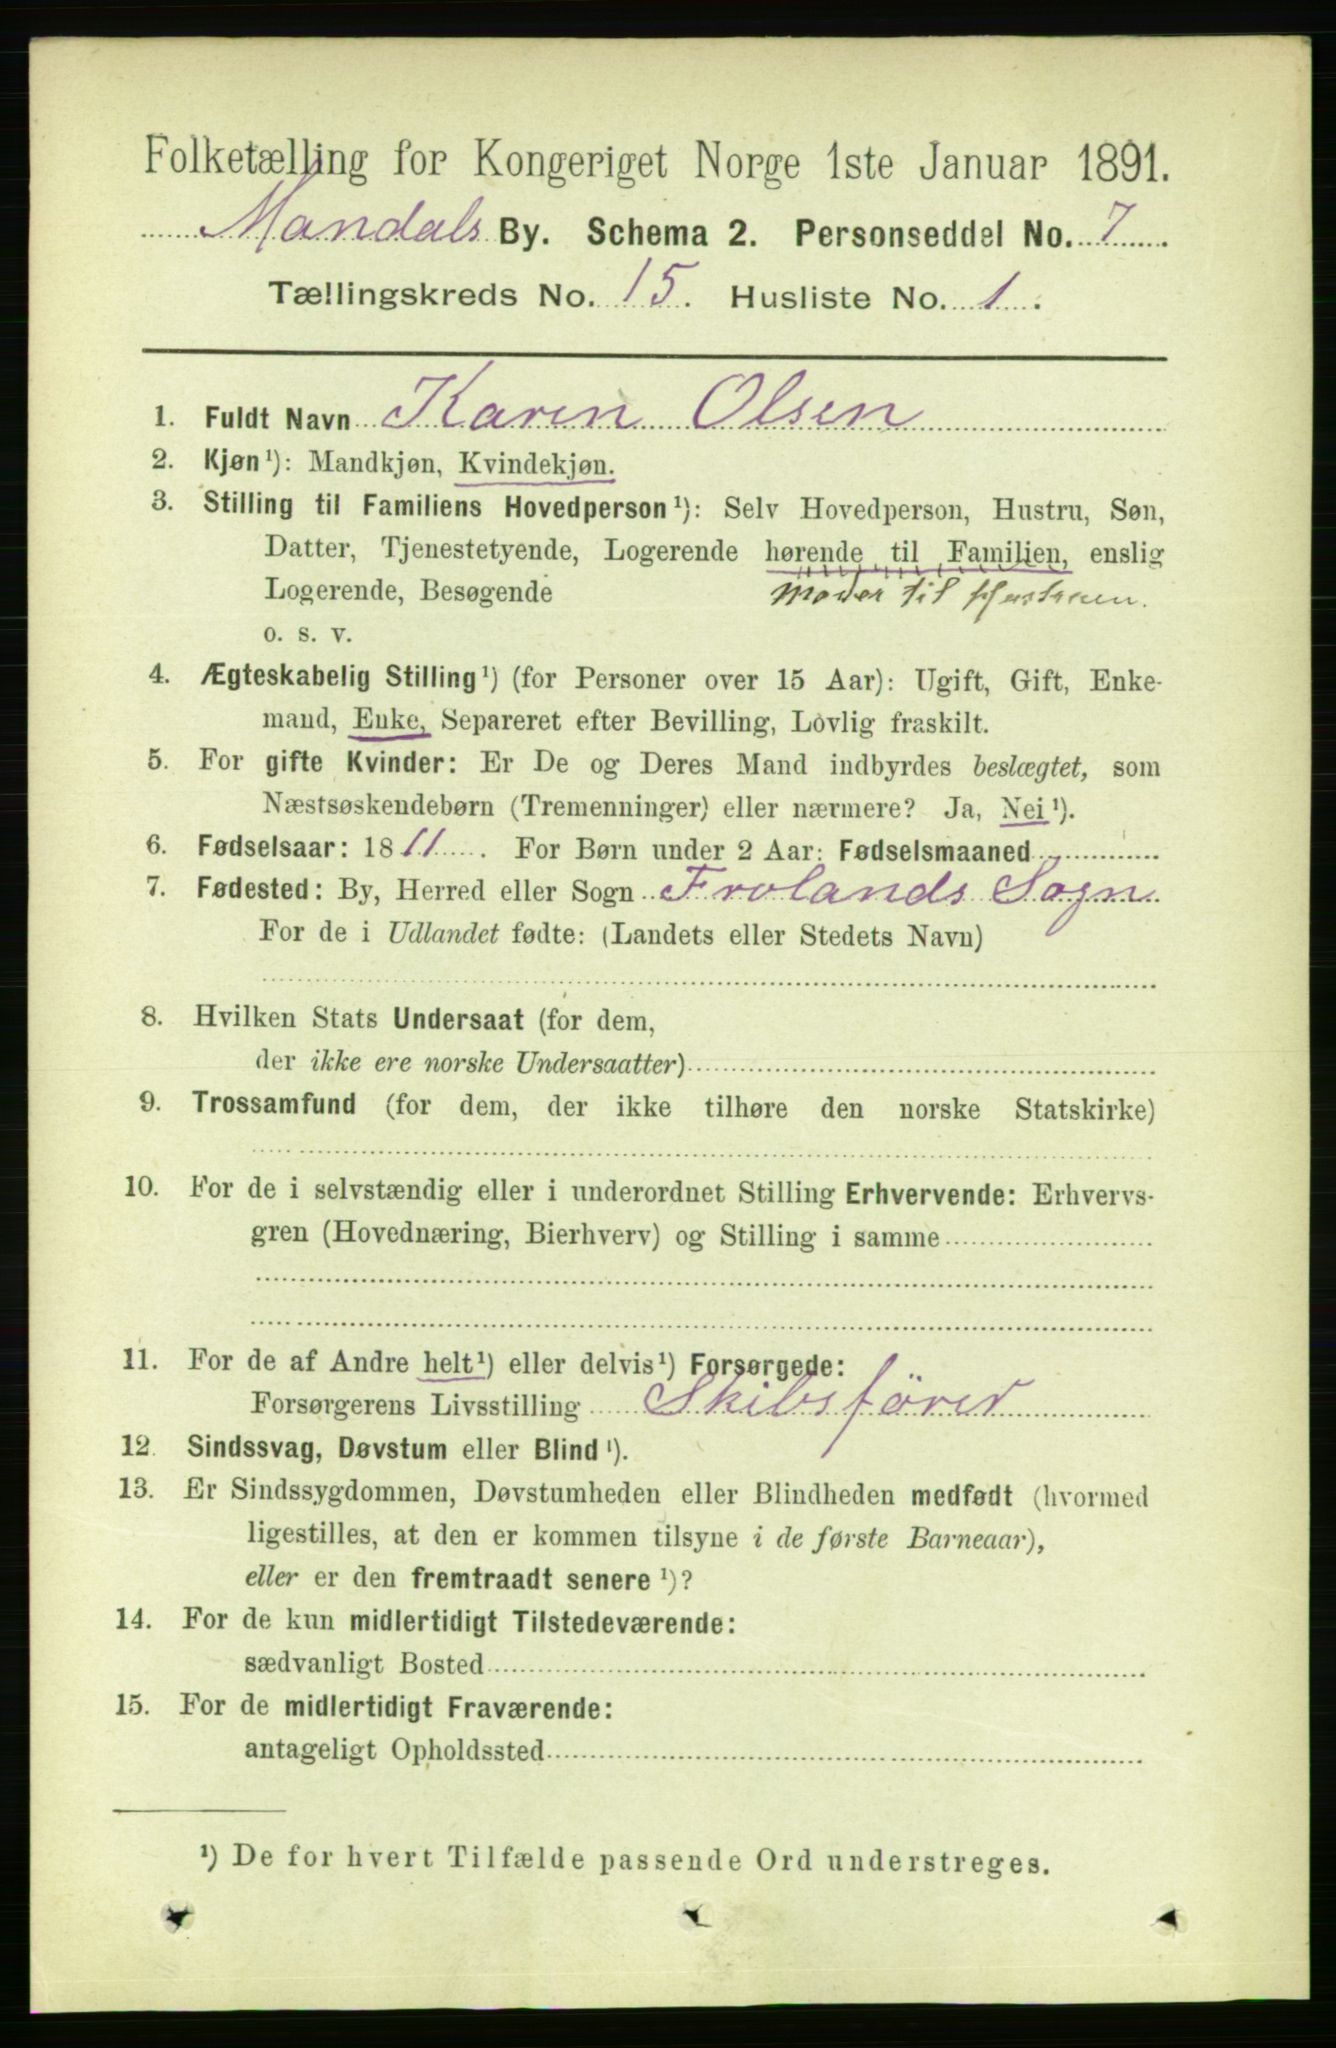 Folketælling for Kongeriget Norge 1ste Januar 1891.
Mandals By. Schema 2. Personseddel No. 7
Tællingskreds No. 15. Husliste No. 1.
1. Fuldt Navn Karen Olsen
2. Kjøn¹): Mandkjøn, Kvindekjøn.
3. Stilling til Familiens Hovedperson¹): Selv Hovedperson, Hustru, Søn,
Datter, Tjenestetyende, Logerende hørende til Familien, enslig
Logerende, Besøgende Moder til Hustruen.
o. s. v.
4. Ægteskabelig Stilling¹) (for Personer over 15 Aar): Ugift, Gift, Enke-
mand, Enke, Separeret efter Bevilling, Lovlig fraskilt.
5. For gifte Kvinder: Er De og Deres Mand indbyrdes beslægtet, som
Næstsøskendebørn (Tremenninger) eller nærmere? Ja, Nei¹).
6. Fødselsaar: 1811. For Børn under 2 Aar: Fødselsmaaned
7. Fødested: By, Herred eller Sogn Frolands Sogn
For de i Udlandet fødte: (Landets eller Stedets Navn)
8. Hvilken Stats Undersaat (for dem,
der ikke ere norske Undersaatter)
9. Trossamfund (for dem, der ikke tilhøre den norske Statskirke)
10. For de i selvstændig eller i underordnet Stilling Erhvervende: Erhvervs-
gren (Hovednæring, Bierhverv) og Stilling i samme
11. For de af Andre helt¹) eller delvis¹) Forsørgede:
Forsørgerens Livsstilling Skibsförer
12. Sindssvag, Døvstum eller Blind¹).
13. Er Sindssygdommen, Døvstumheden eller Blindheden medfødt (hvormed
ligestilles, at den er kommen tilsyne i de første Barneaar),
eller er den fremtraadt senere¹)?
14. For de kun midlertidigt Tilstedeværende:
sædvanligt Bosted
15. For de midlertidigt Fraværende:
antageligt Opholdssted
¹) De for hvert Tilfælde passende Ord understreges.